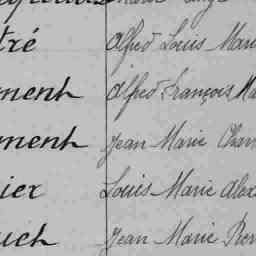 tré Alfred Louis Mari
ment Alfred François Ma
ment Jean Marie Char
ier Louis Marie Alex
uch Jean Marie